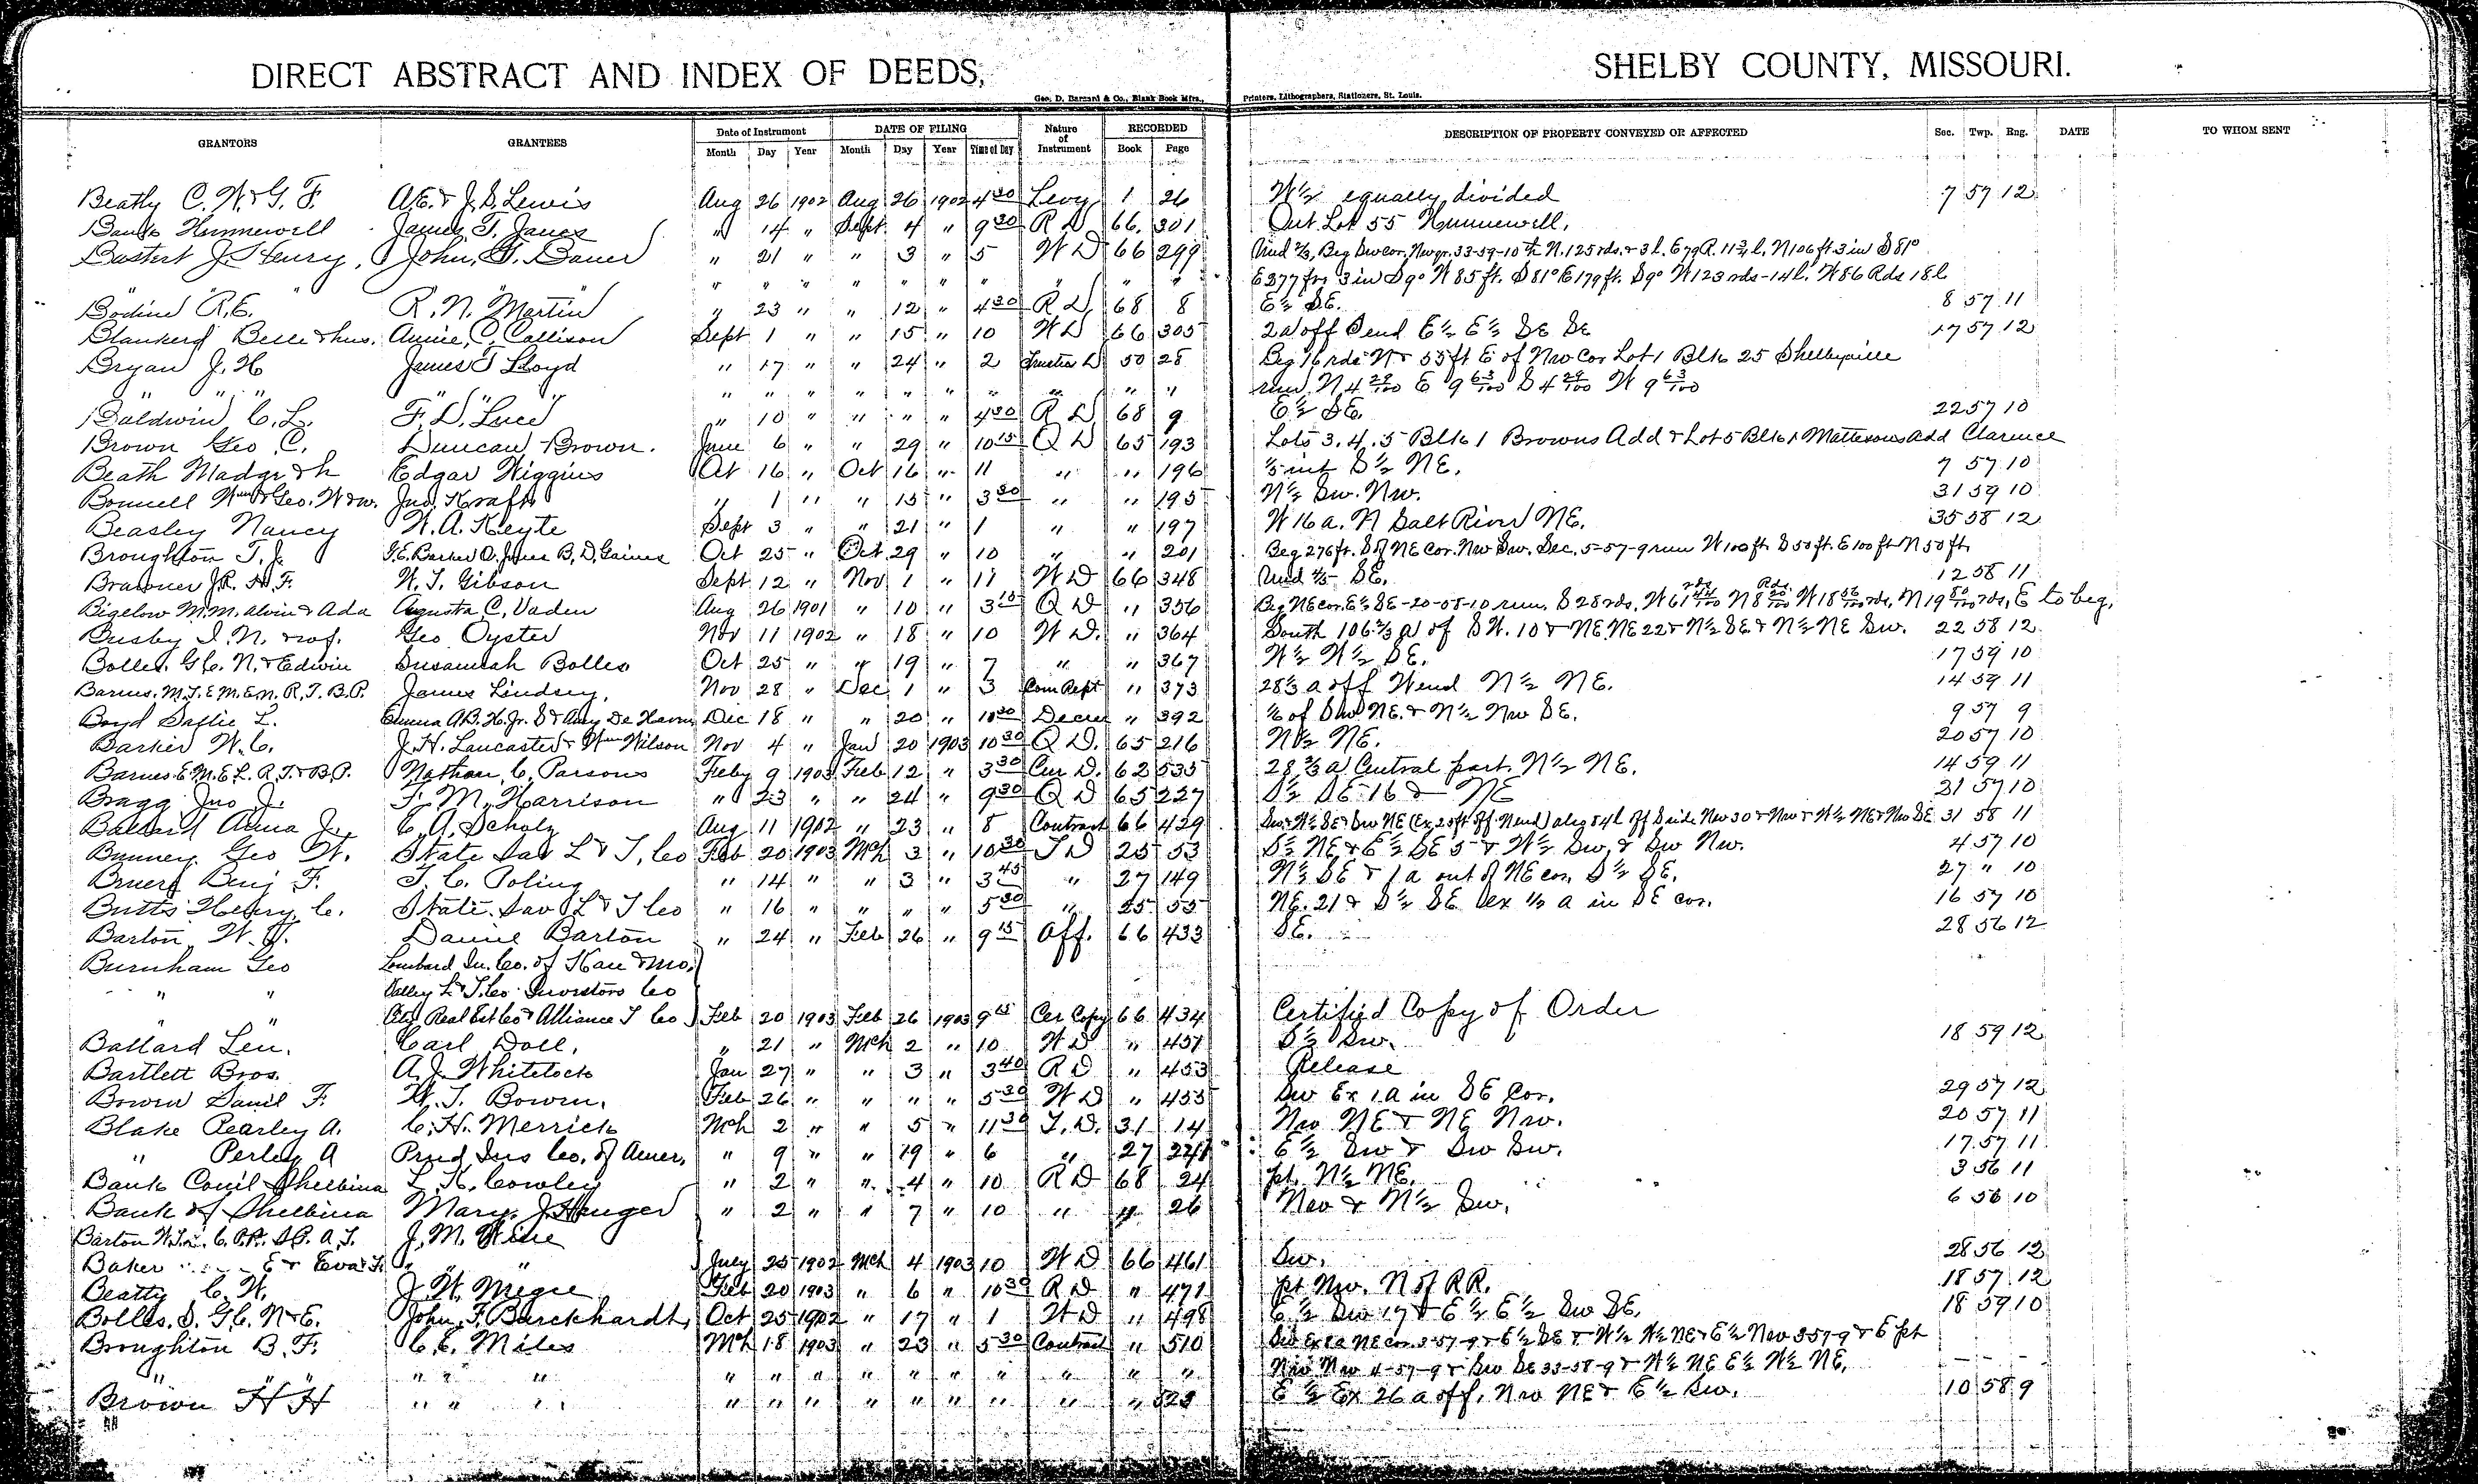 DIRECT ABSTRACT AND INDEX OF DEEDS, SHELBY COUNTY, MISSOURI.
Geo. D. Barnard & Co., Blank Book Mfrs., Printers, Lithographers, Stationers, St. Louis.
GRANTORS GRANTEES Date of Instrument DATE OF FILING Nature of Instrument RECORDED DESCRIPTION OF PROPERTY CONVEYED OR AFFECTED Sec. Twp. Rng. DATE TO WHOM SENT
Month Day Year Month Day Year Time of Day Book Page
Beatty C. W. & G. F. A.E. & J. S. Lewis Aug 26 1902 Aug 26 1902 4 30 Levy 1 26 W 1/2 equally divided 7 57 12
Bank Hunnewell James T. Janes " 14 " Sept. 4 " 9 30 R D 66 301 Out Lot 55 Hunnewell.
Bastert J. Henry, John F. Bauer " 21 " " 3 " 5 W D 66 299 Und 2/3, Beg Sw cor. Nw qr. 33-59-10 th N. 125 rds. & 3 l. E 79 R. 11 3/4 l. N 106 ft 3 in S 81°
" " " " " " " " " " E 377 ft 3 in S 9° W 85 ft. S 81° E 179 ft. S 9° W 123 rds - 14 l. W 86 Rds 18 l
Bodine R.E. R. N. Martin " 23 " " 12 " 4 30 R D 68 8 E 1/2 SE. 8 57 11
Blankers Belle & hus. Annie C. Callison Sept 1 " " 15 " 10 W D 66 305 2 a off S end E 1/2 E 1/2 SE SE 17 57 12
Bryan J. H James T Lloyd " 17 " " 24 " 2 Trustees D 50 28 Beg 16 rds N & 55 ft E of Nw Cor Lot 1 Blk 25 Shelbyville
" " " " " " " " " " " " run N 4 29/100 E 9 63/100 S 4 29/100 W 9 63/100
Baldwin C. L. F. D. Luce " 10 " " " " 4 30 R D 68 9 E 1/2 SE. 22 57 10
Brown Geo C. Duncan Brown. June 6 " " 29 " 10 15 Q D 65 193 Lots 3. 4. 5 Blk 1 Browns Add & Lot 5 Blk 1 Mattesons Add Clarence
Beath Madge & h Edgar Wiggins Oct 16 " Oct 16 " 11 " " 196 1/5 int S 1/2 NE. 7 57 10
Bonnell Wm & Geo. W & w. Jno. Kraft " 1 " " 15 " 3 30 " " 195 N 1/2 Sw. Nw. 31 59 10
Beasley Nancy W. A. Keyte Sept 3 " " 21 " 1 " " 197 W 16 a. N Salt River NE. 35 58 12
Broughton T. J. T.E. Barker O. Jones B. D. Gaines Oct 25 " Oct 29 " 10 " " 201 Beg 276 ft. S of NE Cor. Nw Sw. Sec. 5-57-9 run W 100 ft S 50 ft. E 100 ft N 50 ft.
Brawner J.R. H. F. W. T. Gibson Sept 12 " Nov 1 " 11 W D 66 348 Und 4/5 SE. 12 58 11
Bigelow M.M. Alvin & Ada Augusta C. Vaden Aug 26 1901 " 10 " 3 15 Q D " 356 Beg NE cor. E 1/2 SE - 20-58-10 run. S 28 rds. W 61 rds N 8 Rds W 18 56/100 rds. N 19 80/100 rds, E to beg.
Busby I. N. & wf. Geo Oyster Nov 11 1902 " 18 " 10 W D. " 364 South 106 2/3 a of SW. 10 & NE. NE 22 & N 1/2 SE & N 1/2 NE Sw. 22 58 12
Bolles. G C. N. & Edwin Susannah Bolles Oct 25 " " 19 " 7 " " 367 W 1/2 W 1/2 SE. 17 59 10
Barnes, M.J. E.M. E.N. R.T. B.P. James Lindsey, Nov 28 " Dec 1 " 3 Com Rept " 373 28 1/3 a off W end N 1/2 NE. 14 59 11
Boyd Sallie L. Emma A.B. H. Jr. S & Amy De Haven Dec 18 " " 20 " 10 30 Decree " 392 1/6 of Sw NE. & N 1/2 Nw SE. 9 57 9
Barker W. C. J. H. Lancaster & Wm Wilson Nov 4 " Jan 20 1903 10 30 Q D. 65 216 N 1/2 NE. 20 57 10
Barnes E.M. E L. R. T. & B.P. Nathan C. Parsons Feby 9 1903 Feb 12 " 3 30 Cur D. 62 535 28 2/3 a Central part. N 1/2 NE. 14 59 11
Bragg Jno J. F. M. Harrison " 23 " " 24 " 9 30 Q D 65 227 S 1/2 SE 16 & NE 21 57 10
Ballard Anna J. C. A. Scholz Aug 11 1902 " 23 " 8 Contract 66 429 31 58 11
Bunney Geo W. State Sav L & T. Co Feb 20 1903 Mch 3 " 10 30 T D 25 53 S 1/2 NE & E 1/2 SE 5 & W 1/2 Sw. & Sw Nw. 4 57 10
Bruers Benj F. T. C. Poling " 14 " " 3 " 3 45 " 27 149 N 1/2 SE & 1 a out of NE cor. S 1/2 SE. 27 " 10
Butts Henry C. State Sav L & T Co " 16 " " " " 5 30 " 25 55 NE. 21 & S 1/2 SE (ex 1/2 a in SE cor. 16 57 10
Barton W. H. Daniel Barton " 24 " Feb 26 " 9 15 Aff. 66 433 SE. 28 56 12
Burnham Geo Lombard In. Co. of Kan & Mo.
" " Valley L & T. Co Investors Co
" " City Real Est Co & Alliance T Co Feb 20 1903 Feb 26 1903 9 15 Cer Copy 66 434 Certified Copy of Order
Ballard Len. Carl Doll. " 21 " Mch 2 " 10 W D " 451 S 1/2 Sw. 18 59 12
Bartlett Bros. A. J. Whitelock Jan 27 " " 3 " 3 40 R D " 453 Release
Bowen Daniel F. W. T. Bowen. Feb 26 " " " " 5 30 W D " 455 Sw Ex 1 a in SE Cor. 29 57 12
Blake Pearley A. C. H. Merrick Mch 2 " " 5 " 11 30 T. D. 31 14 Nw NE & NE Nw. 20 57 11
" Perley A Prud Ins Co. of Amer. " 9 " " 19 " 6 " 27 221 E 1/2 Sw & Sw Sw. 17 57 11
Bank Comil Shelbina L. K. Cowley " 2 " " 4 " 10 R D 68 24 pt. N 1/2 NE. 3 56 11
Bank of Shelbina Mary J. Henger " 2 " " 7 " 10 " " 26 Nw & N 1/2 Sw. 6 56 10
Barton J. M. Wise
Baker E & Eva " " July 25 1902 Mch 4 1903 10 W D 66 461 Sw. 28 56 12
Beatty C. W. J. W. Megee Feb 20 1903 " 6 " 10 30 R D " 471 pt Nw. N of RR. 18 57 12
Bolles. S. G C. N & E. John F. Burckhardt, Oct 25 1902 " 17 " 1 W D " 498 E 1/2 Sw 17 & E 1/2 E 1/2 Sw SE. 18 59 10
Broughton B. F. C. E. Miles Mch 18 1903 " 23 " 5 30 Contract " 510 Sw Ex 2 a NE cor. 3-57-9 & E 1/2 SE & W 1/2 W 1/2 NE & E 1/2 Nw 3 57-9 & E pt
" " " " " " " " " " " " " Nw Nw 4-57-9 & Sw SE 33-58-9 & W 1/2 NE E 1/2 W 1/2 NE.
Brown H H " " " " " " " " " " " " 523 E 1/2 Ex 26 a off. Nw NE & E 1/2 Sw. 10 58 9